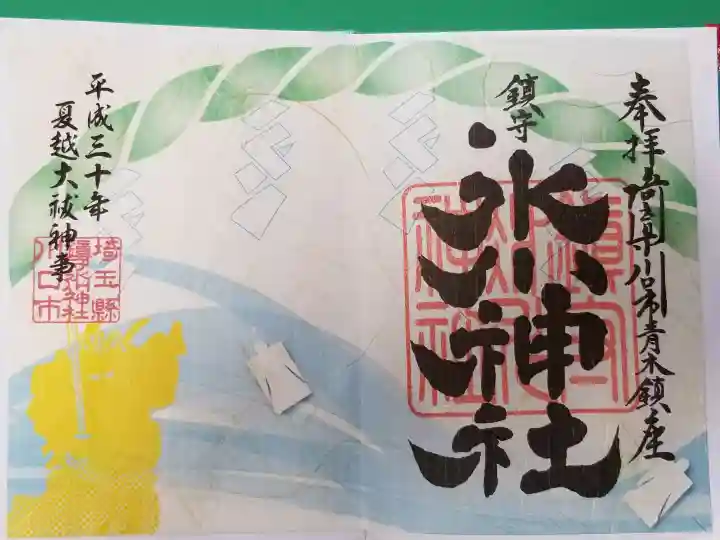 奉拝 埼玉県川口市青木鎮座
鎮守
氷川神社
平成三十年
夏越大祓神事
埼玉縣
鎮守氷川神社
川口市